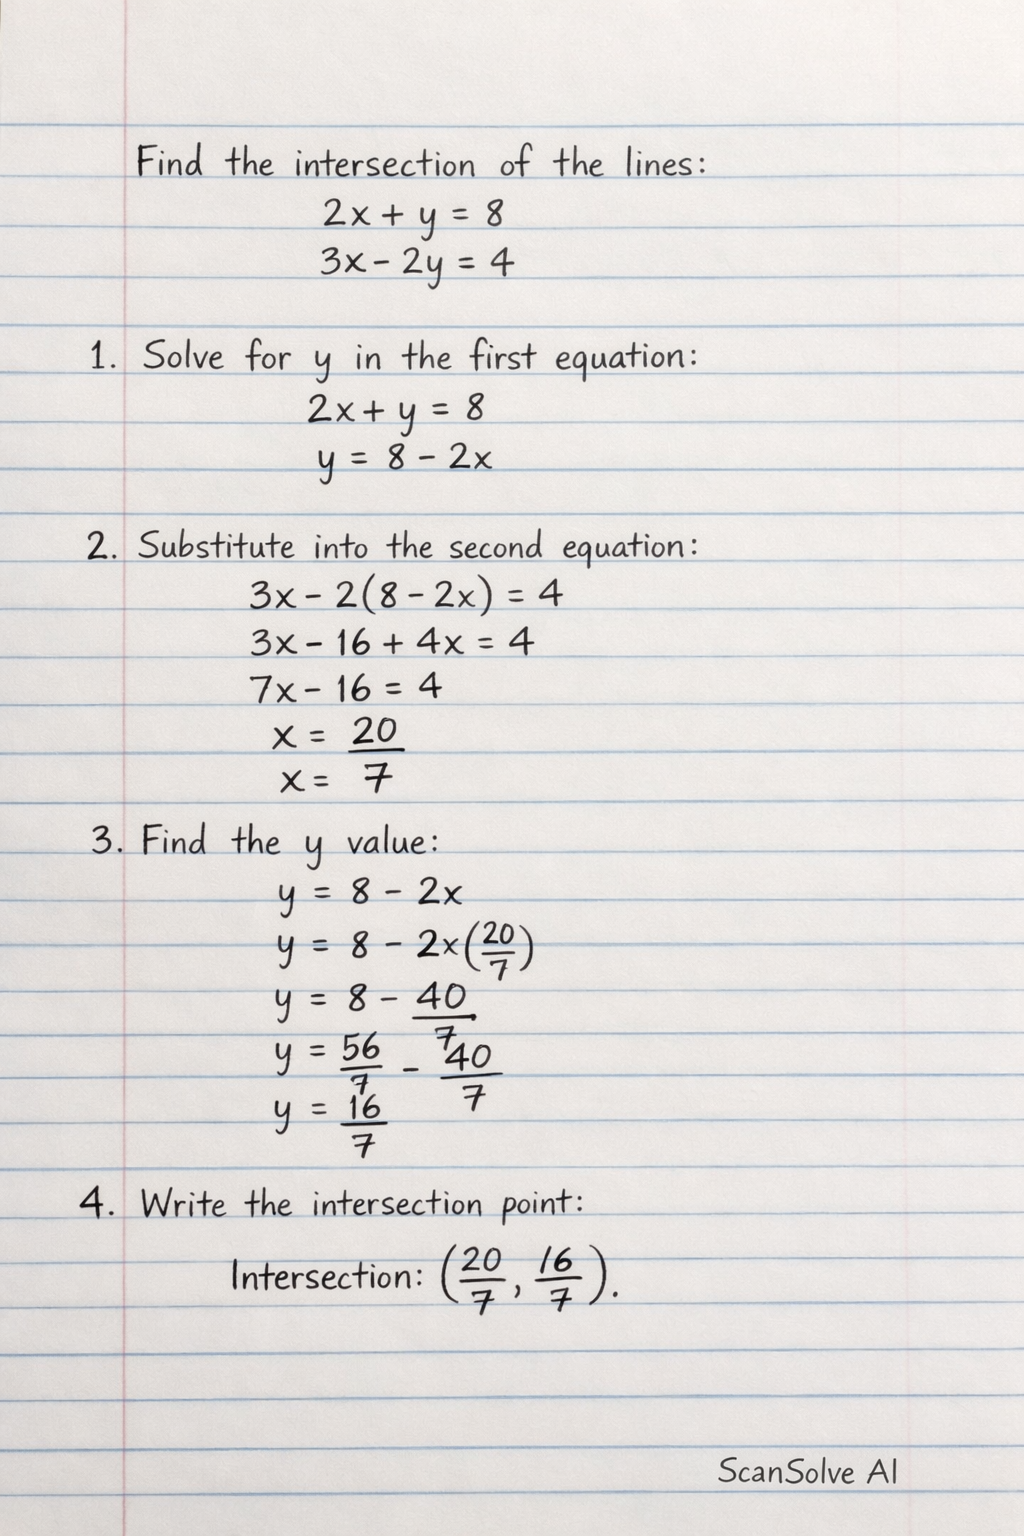 Find the intersection of the lines:
2x + y = 8
3x - 2y = 4
1. Solve for y in the first equation:
2x + y = 8
y = 8 - 2x
2. Substitute into the second equation:
3x - 2(8 - 2x) = 4
3x - 16 + 4x = 4
7x - 16 = 4
x = 20
x = 7
3. Find the y value:
y = 8 - 2x
y = 8 - 2x(20/7)
y = 8 - 40/7
y = 56/7 - 40/7
y = 16/7
4. Write the intersection point:
Intersection: (20/7, 16/7).
ScanSolve AI